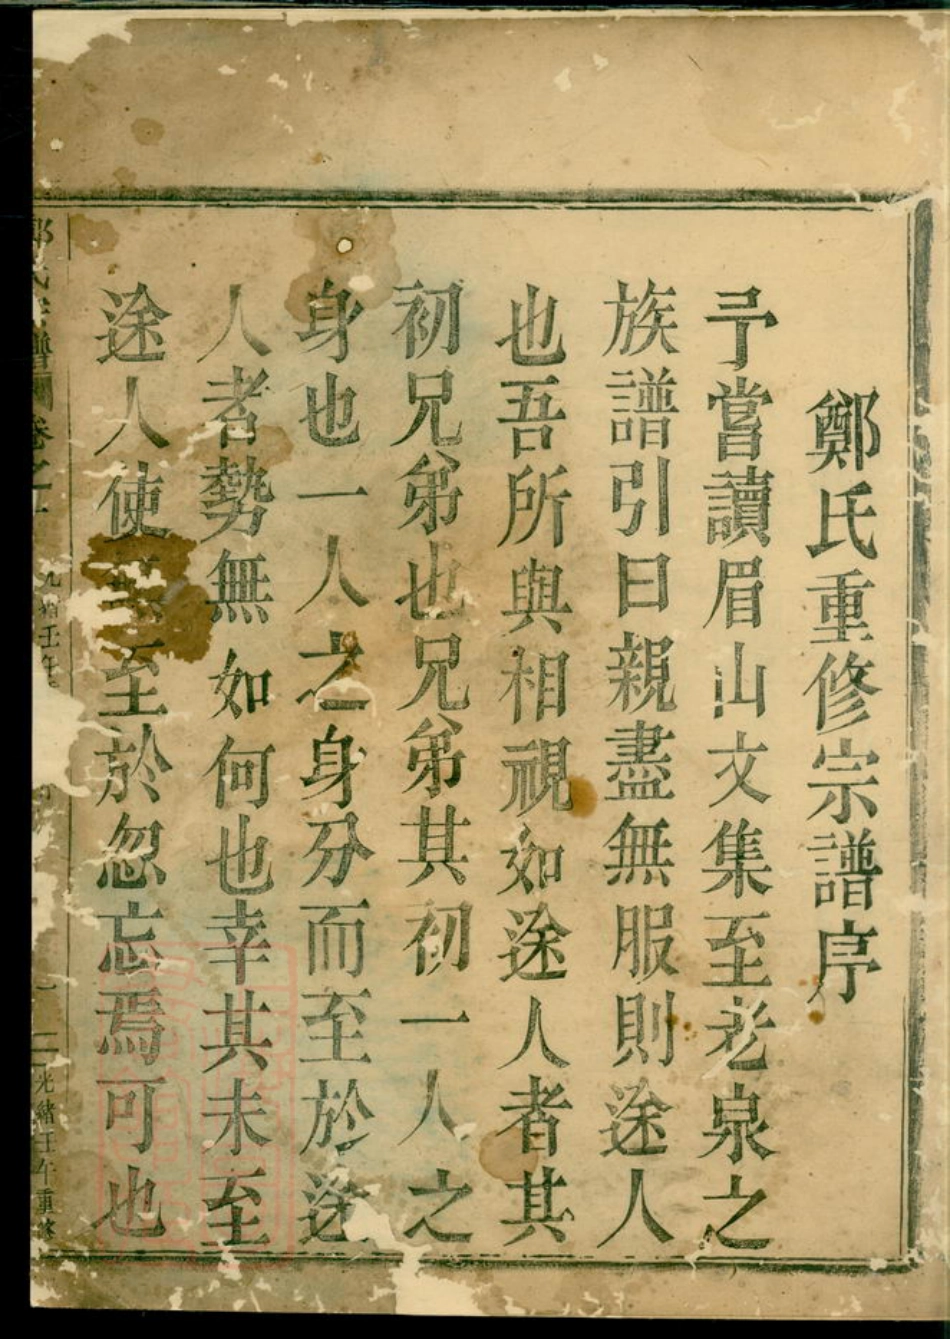 鄭氏重修宗譜序
予嘗讀眉山文集至老泉之
族譜引曰親盡無服則途人
也吾所與相視如途人者其
初兄弟也兄弟其初一人之
身也一人之身分而至於途
人者勢無如何也幸其未至
途人使無至於忽忘焉可也
光緒壬午重修